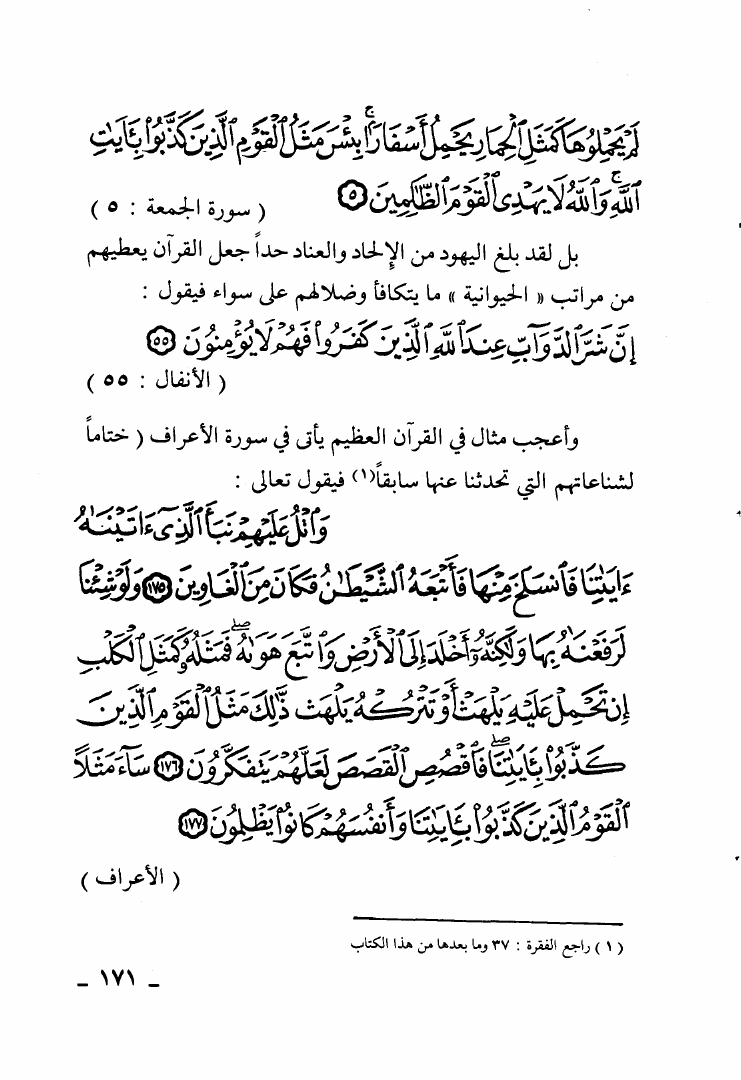 لَمْ يَحْمِلُوهَا كَمَثَلِ ٱلْحِمَارِ يَحْمِلُ أَسْفَارًۢا ۚ بِئْسَ مَثَلُ ٱلْقَوْمِ ٱلَّذِينَ كَذَّبُوا۟ بِـَٔايَٰتِ
ٱللَّهِ ۚ وَٱللَّهُ لَا يَهْدِى ٱلْقَوْمَ ٱلظَّٰلِمِينَ ٥ ( سورة الجمعة : ٥ )
بل لقد بلغ اليهود من الإلحاد والعناد حداً جعل القرآن يعطيهم
من مراتب « الحيوانية » ما يتكافأ وضلالهم على سواء فيقول :
إِنَّ شَرَّ ٱلدَّوَآبِّ عِندَ ٱللَّهِ ٱلَّذِينَ كَفَرُوا۟ فَهُمْ لَا يُؤْمِنُونَ ٥٥
( الأنفال : ٥٥ )
وأعجب مثال في القرآن العظيم يأتى في سورة الأعراف ( ختاماً
لشناعاتهم التي تحدثنا عنها سابقاً(١) فيقول تعالى :
وَٱتْلُ عَلَيْهِمْ نَبَأَ ٱلَّذِىٓ ءَاتَيْنَٰهُ
ءَايَٰتِنَا فَٱنسَلَخَ مِنْهَا فَأَتْبَعَهُ ٱلشَّيْطَٰنُ فَكَانَ مِنَ ٱلْغَاوِينَ ١٧٥ وَلَوْ شِئْنَا
لَرَفَعْنَٰهُ بِهَا وَلَٰكِنَّهُۥٓ أَخْلَدَ إِلَى ٱلْأَرْضِ وَٱتَّبَعَ هَوَىٰهُ ۖ فَمَثَلُهُۥ كَمَثَلِ ٱلْكَلْبِ
إِن تَحْمِلْ عَلَيْهِ يَلْهَثْ أَوْ تَتْرُكْهُ يَلْهَث ذَّٰلِكَ مَثَلُ ٱلْقَوْمِ ٱلَّذِينَ
كَذَّبُوا۟ بِـَٔايَٰتِنَا ۖ فَٱقْصُصِ ٱلْقَصَصَ لَعَلَّهُمْ يَتَفَكَّرُونَ ١٧٦ سَآءَ مَثَلًا
ٱلْقَوْمُ ٱلَّذِينَ كَذَّبُوا۟ بِـَٔايَٰتِنَا وَأَنفُسَهُمْ كَانُوا۟ يَظْلِمُونَ ١٧٧
( الأعراف )
( ١ ) راجع الفقرة : ٣٧ وما بعدها من هذا الكتاب
_ ١٧١ _